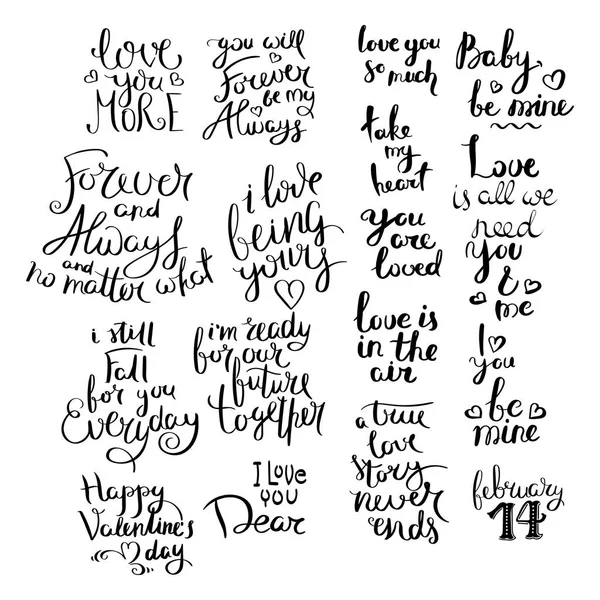 love
you
MORE
you will
Forever
be my
Always
Forever
and
Always
and
no matter what
i love
being
yours
i still
Fall
for you
Everyday
i'm ready
for our
future
together
Happy
Valentine's
day
I Love
you
Dear
love you
so much
take
my
heart
you
are
loved
love is
in the
air
a true
love
story
never
ends
Baby
be mine
Love
is all we
need
You
&
me
I
you
be
mine
february
14